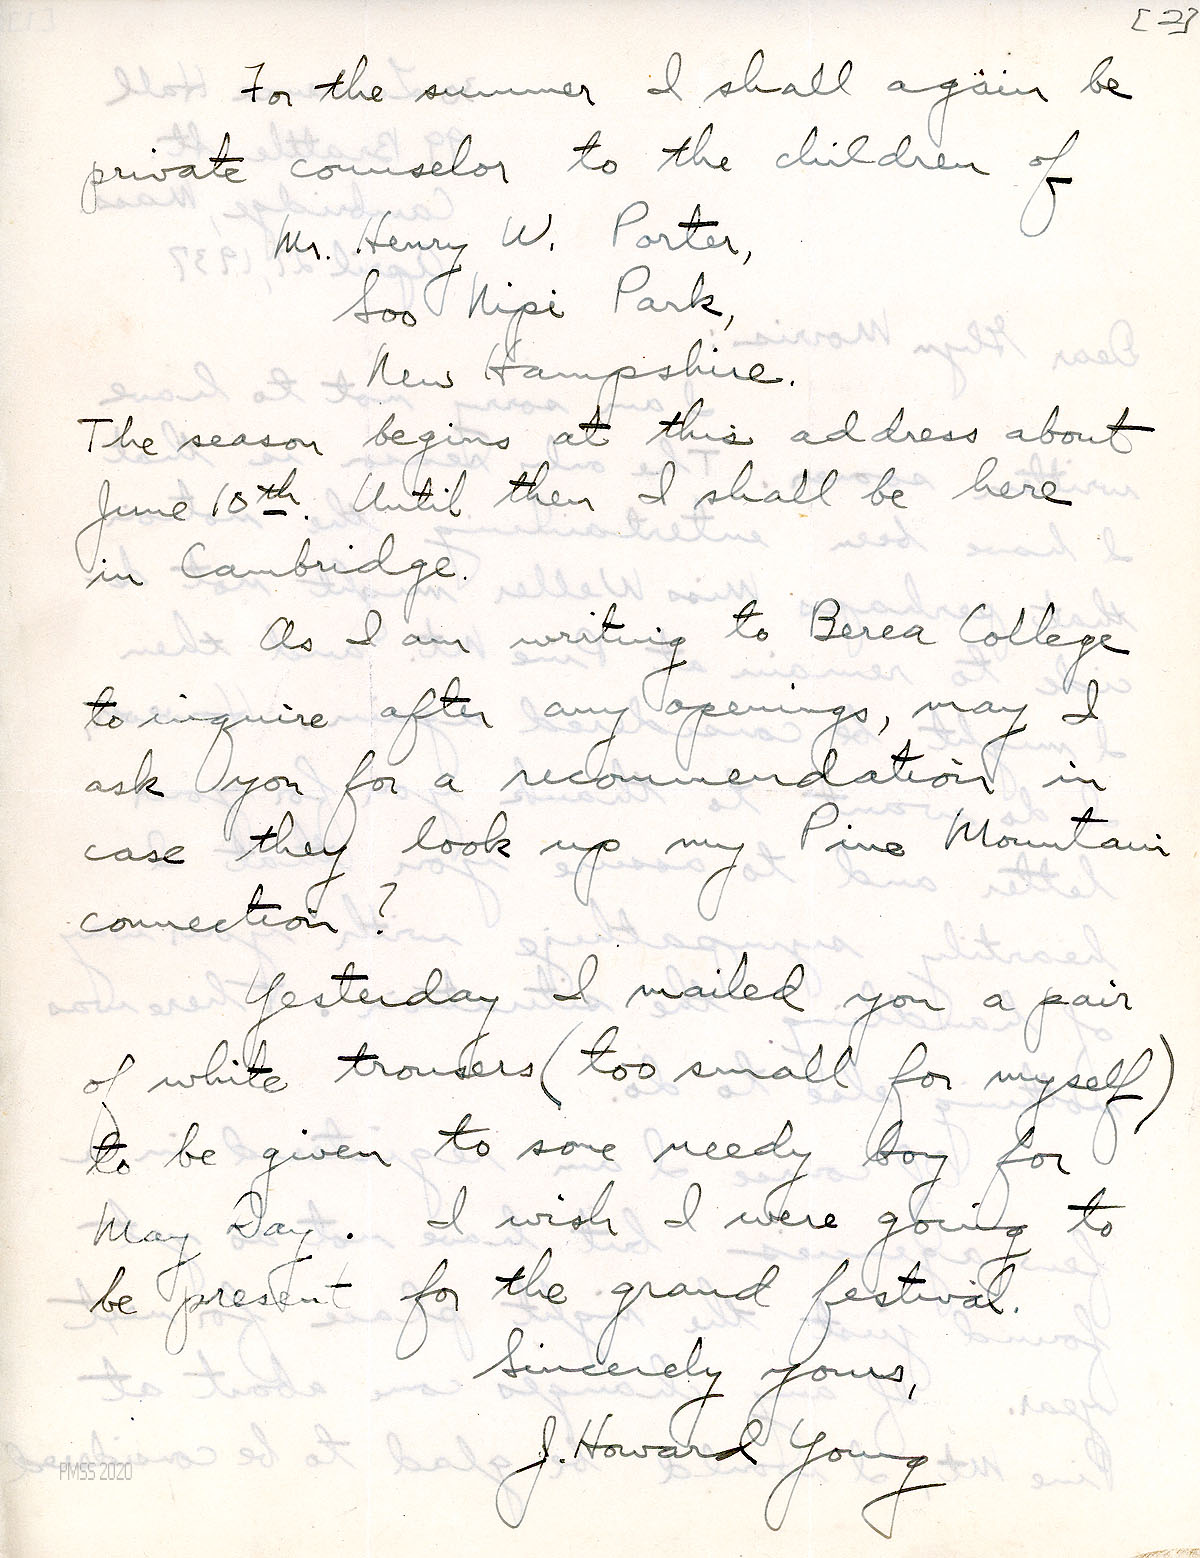 [2]
For the summer I shall again be
private counselor to the children of
Mr. Henry W. Porter,
Soo Nipi Park,
New Hampshire.
The season begins at this address about
June 10th. Until then I shall be here
in Cambridge.
As I am writing to Berea College
to inquire after any openings, may I
ask you for a recommendation in
case they look up my Pine Mountain
connection?
Yesterday I mailed you a pair
of white trousers (too small for myself)
to be given to some needy boy for
May Day. I wish I were going to
be present for the grand festival.
Sincerely yours,
J. Howard Young
PMSS 2020